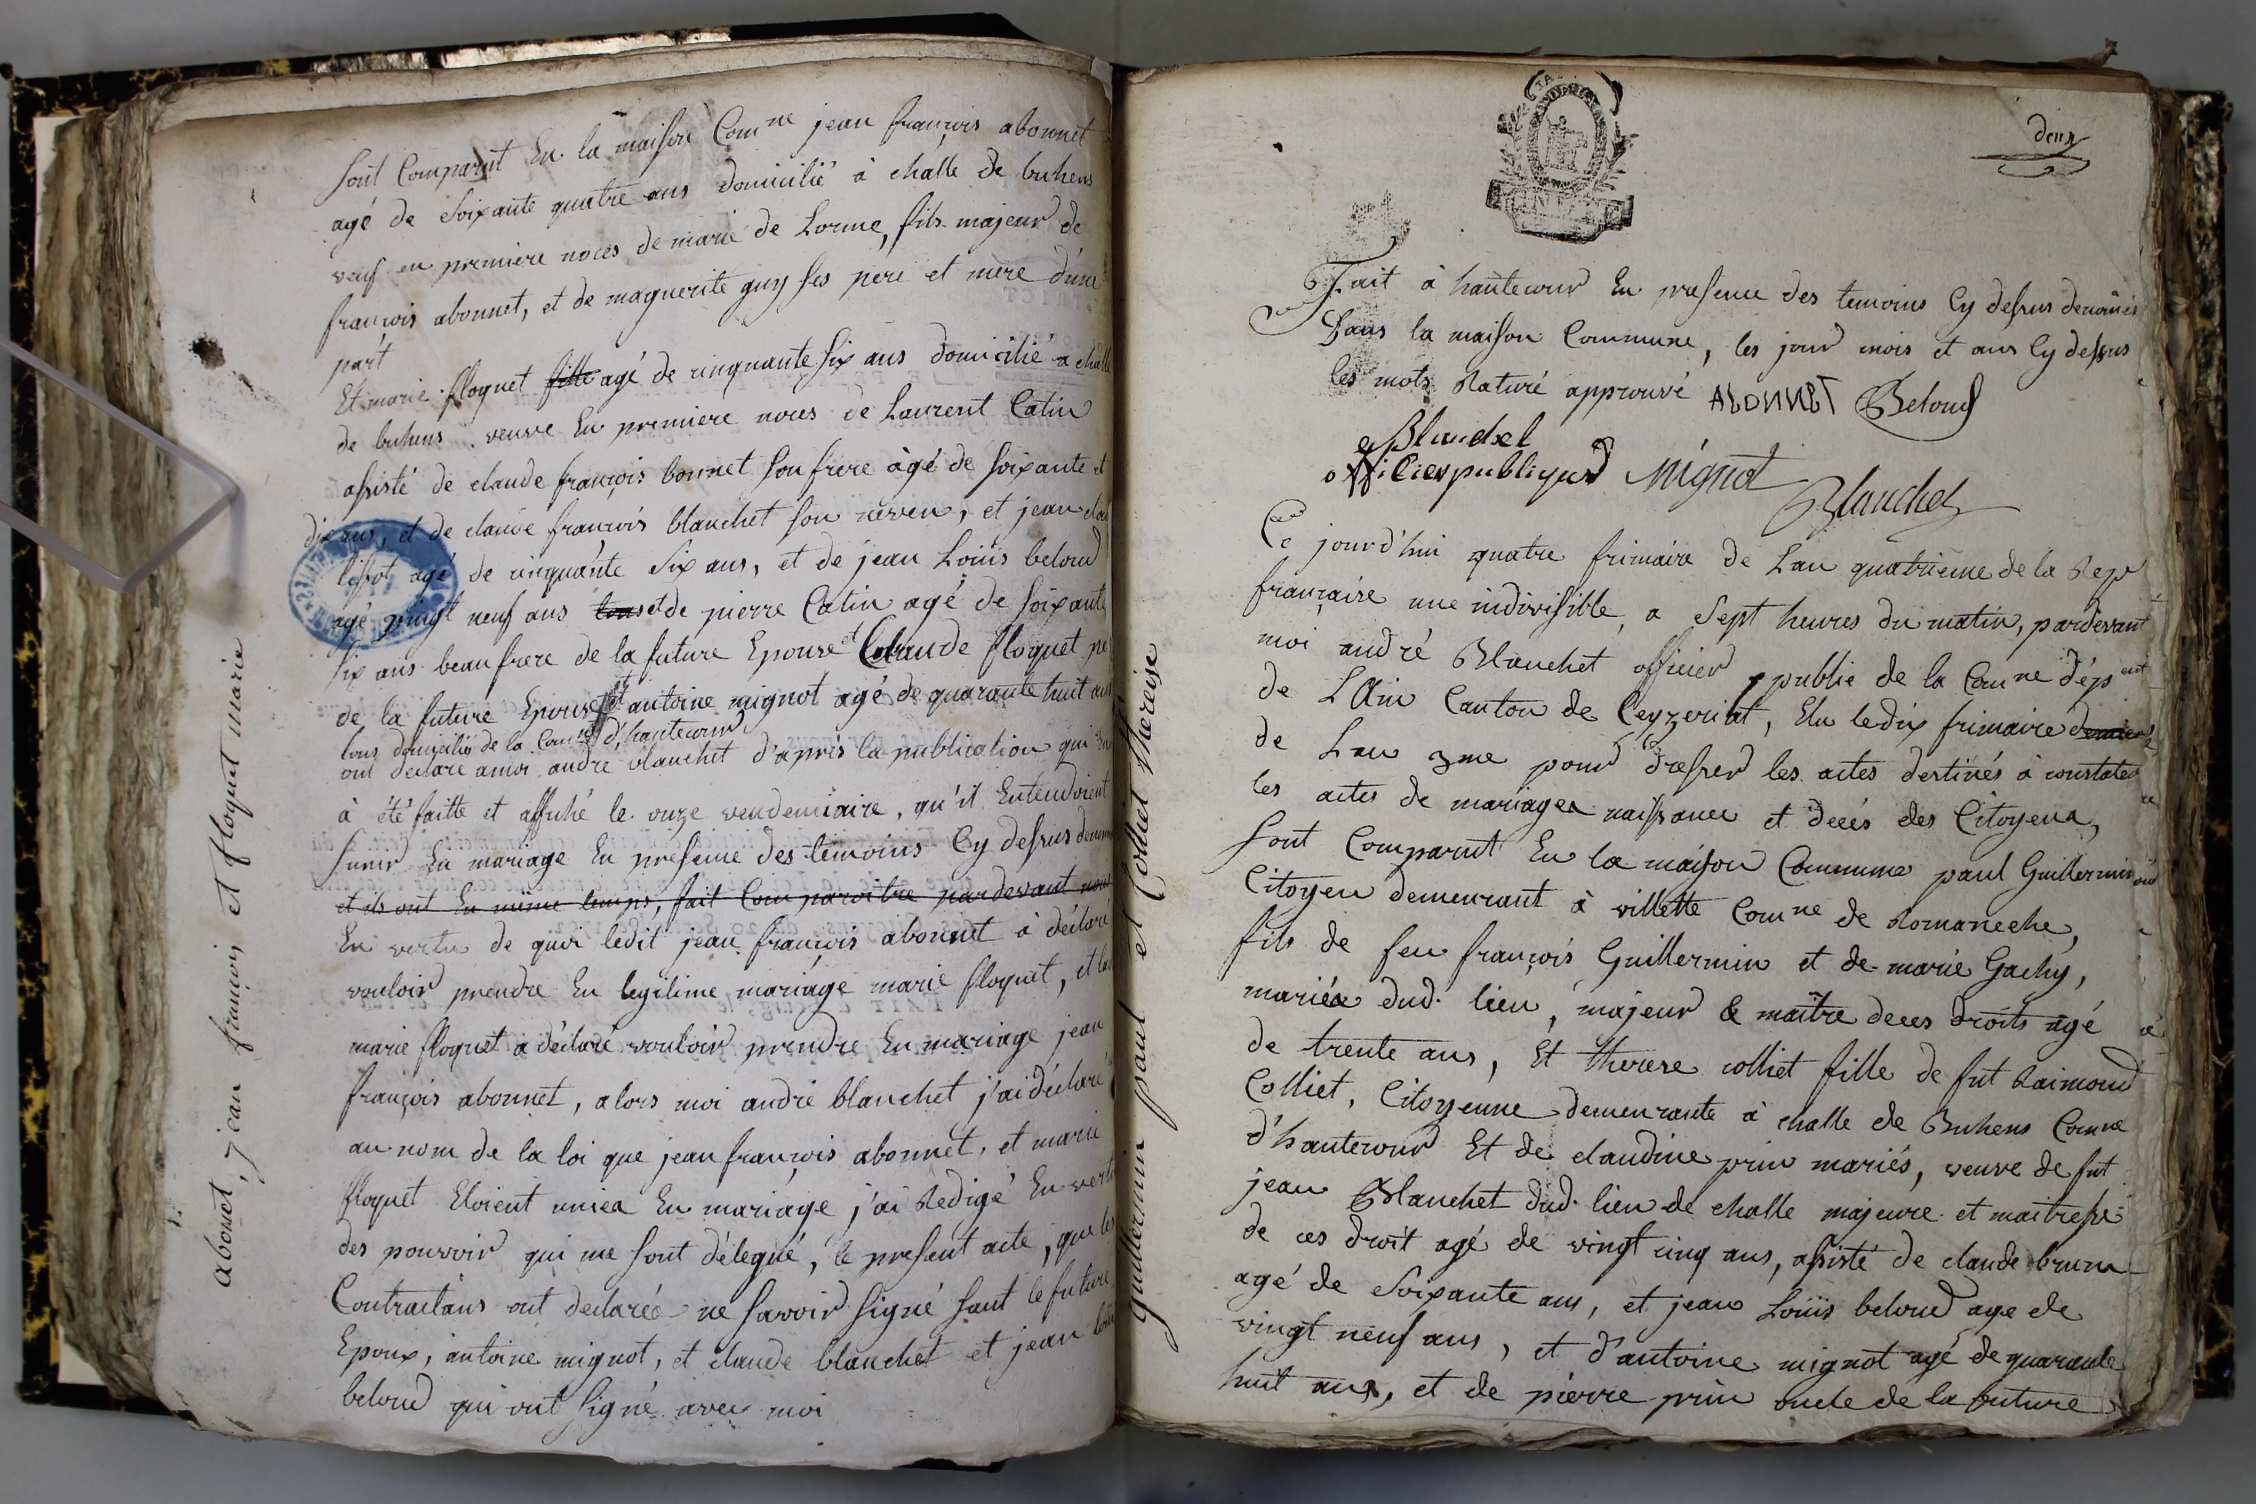 sont comparut En la maison Comne jean françois abonnet
agé de soixante quatre ans domicilié à challe de buhens
veuf en premiere noces de marie de Lorme, fils majeur de
françois abonnet, et de maguerite guy ses pere et mere d'une
part
Et marie floquet fille agé de cinquante six ans domicilié a challe
de buhens veuve En premiere noces de Laurent Catin
assisté de claude françois bonnet son frere âgé de soixante et
dix ans, et de claude françois blanchet son neveu, et jean
agé de cinquante six ans, et de jean Loüis beloud
agé vingt neuf ans tous et de pierre Catin agé de soixante
six ans beaufrere de la future Epouse et Claude floquet
de la future Epouse et antoine mignot agé de quarante huit ans
tous domicilié de la Comne d'hautecour
ont declaré a moi andré blanchet d'après la publication qui
à été faitte et affiché le onze vendemiaire, qu'il Entendoient
s'unir En mariage En presence des temoins Cy dessus
et ils ont En même temps, fait Comparoitre pardevant nous
En vertu de quoi ledit jean françois abonnet à déclaré
vouloir prendre En legitime mariage marie floquet, et la
marie floquet a déclaré vouloir prendre En mariage jean
françois abonnet, alors moi andré blanchet j'ai déclaré
au nom de la loi que jean françois abonnet, et marie
floquet Etoient unies En mariage, j'ai Redigé En vertu
des pouvoir qui me sont délegué, le present acte, que les
Contractans ont declarée ne savoir signé sauf le future
Epoux, antoine mignot, et claude blanchet et jean loüis
beloud qui ont signé avec moi
abonet, jean françois et floquet marie
deux
Fait à hautecour En presence des temoins Cy dessus denomés
Dans la maison Commune, les jour mois et ans Cy dessus
les mots Raturé approuvé ABONNET Beloud
Blanchet
officier publique Mignot
Blanchet
Ce jourd'hui quatre frimaire de Lan quatrieme de la Rep
française une indivisible, a sept heures du matin, pardevant
moi andré Blanchet officier publie de la Comne dépent
de L'Ain Canton de Ceyzeriat, Elu le dix frimaire dernier
de Lan 3me pour dresser les actes destinés à constater
les actes de mariages naissance et décés des Citoyens,
sont Comparut En la maison Commune paul Guillermin
Citoyen demeurant à villette Comne de Romaneche,
fils de feu françois Guillermin et de marie Gachy,
mariés dud. lieu, majeur & maître de ces droits agé
de trente ans, Et therese colliet fille de fut Raimond
Colliet, Citoyenne demeurante à challe de Buhens Comne
d'hautecour Et de claudine prin mariés, veuve de fut
jean Blanchet dud. lieu de challe majeure et maitresse
de ces droit agé de vingt cinq ans, assisté de claude brun
agé de soixante ans, et jean Loüis beloud age de
vingt neuf ans, et d'antoine mignot agé de quarante
huit ans, et de pierre prin oncle de la future
Guillermin paul et Colliet thereise